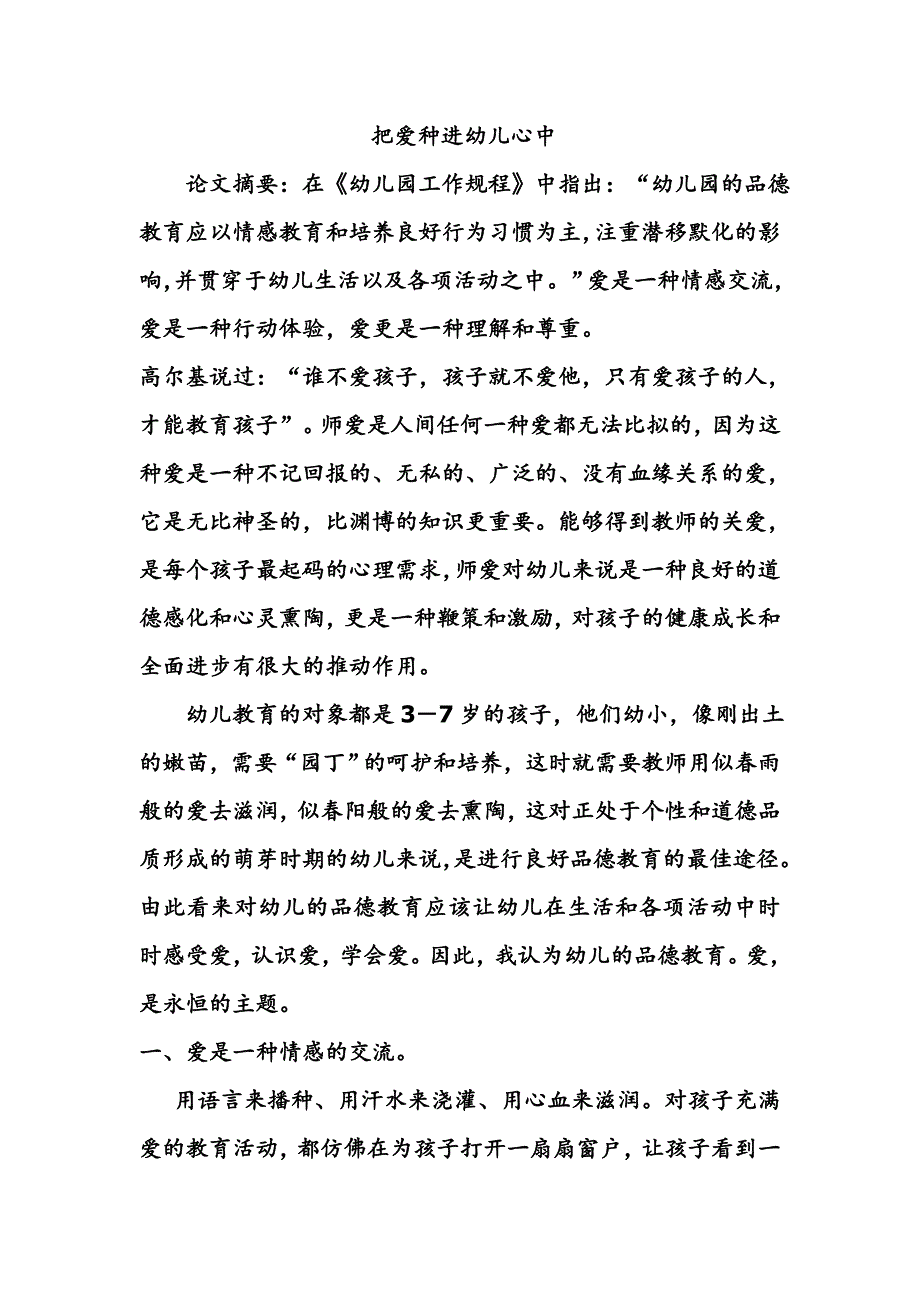 把爱种进幼儿心中
论文摘要：在《幼儿园工作规程》中指出：“幼儿园的品德
教育应以情感教育和培养良好行为习惯为主,注重潜移默化的影
响,并贯穿于幼儿生活以及各项活动之中。”爱是一种情感交流，
爱是一种行动体验，爱更是一种理解和尊重。
高尔基说过：“谁不爱孩子，孩子就不爱他，只有爱孩子的人，
才能教育孩子”。师爱是人间任何一种爱都无法比拟的，因为这
种爱是一种不记回报的、无私的、广泛的、没有血缘关系的爱，
它是无比神圣的，比渊博的知识更重要。能够得到教师的关爱，
是每个孩子最起码的心理需求,师爱对幼儿来说是一种良好的道
德感化和心灵熏陶，更是一种鞭策和激励，对孩子的健康成长和
全面进步有很大的推动作用。
幼儿教育的对象都是 3—7 岁的孩子，他们幼小，像刚出土
的嫩苗，需要“园丁”的呵护和培养，这时就需要教师用似春雨
般的爱去滋润，似春阳般的爱去熏陶，这对正处于个性和道德品
质形成的萌芽时期的幼儿来说,是进行良好品德教育的最佳途径。
由此看来对幼儿的品德教育应该让幼儿在生活和各项活动中时
时感受爱，认识爱，学会爱。因此，我认为幼儿的品德教育。爱，
是永恒的主题。
一、爱是一种情感的交流。
用语言来播种、用汗水来浇灌、用心血来滋润。对孩子充满
爱的教育活动，都仿佛在为孩子打开一扇扇窗户，让孩子看到一